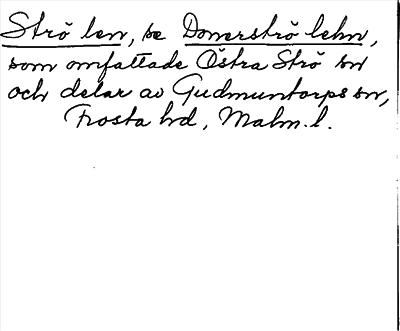 Strö len, se Donerströ lehn,
som omfattade Östra Strö sn
och delar av Gudmuntorps sn,
Frosta hd, Malm. l.